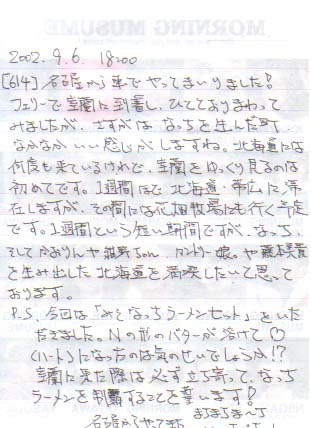 MORNING MUSUME
2002. 9. 6. 18:00
[614] 名古屋から車でやってまいりました!
フェリーで室蘭に到着し、ひととおりまわって
みましたが、さすがは なっちを生んだ町、
なかなかいい感じがしますね。北海道には
何度も来ているけれど、室蘭をゆっくり見るのは
初めてです。1週間ほど北海道・帯広に滞
在しますが、その間には花畑牧場にも行く予定
です。1週間という短い期間ですが、なっち、
そしてかおりんや紺野ちゃん、カントリー娘。や藤本美貴
を生み出した北海道を満喫したいと思って
おります。
P.S. 今回は「みそなっちラーメンセット」をいた
だきました。Nの形のバターが溶けて♡
(ハート)になったのは気のせいでしょうか!?
室蘭に来た際は必ず立ち寄って、なっち
ラーメンを制覇することを誓います!
名古屋からやって来た